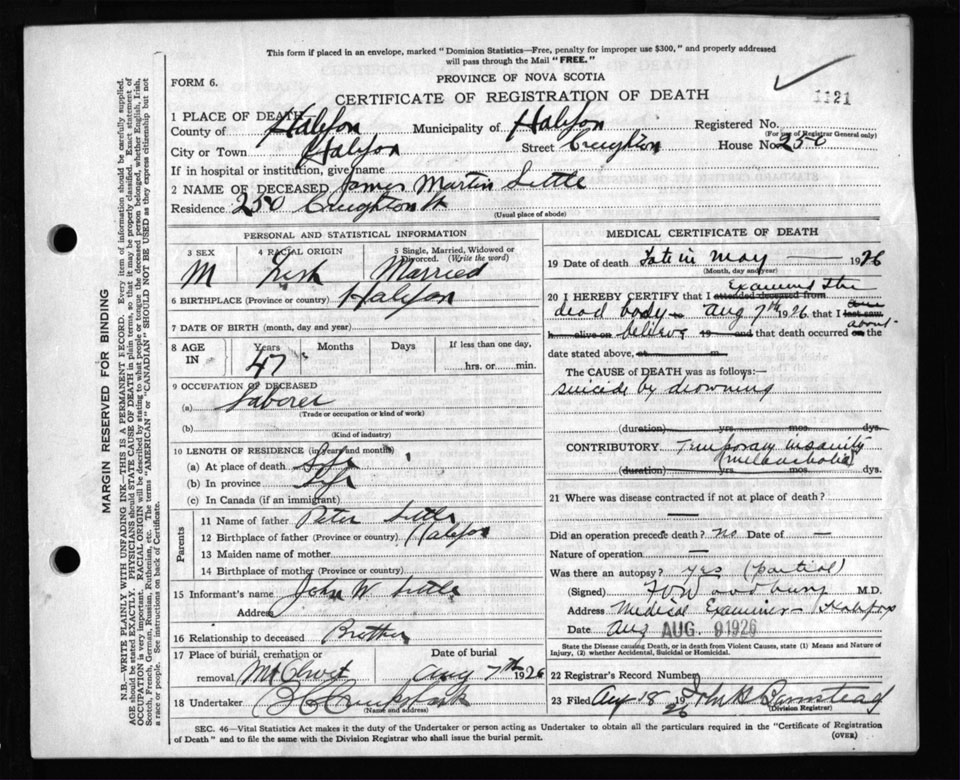 This form if placed in an envelope, marked "Dominion Statistics—Free, penalty for improper use $300," and properly addressed
will pass through the Mail "FREE."
FORM 6.
PROVINCE OF NOVA SCOTIA
CERTIFICATE OF REGISTRATION OF DEATH
1121
1 PLACE OF DEATH
County of Halifax Municipality of Halifax Registered No.
(For use of Registrar General only)
City or Town Halifax Street Creighton House No. 250
If in hospital or institution, give name
2 NAME OF DECEASED James Martin Little
Residence 250 Creighton St
(Usual place of abode)
PERSONAL AND STATISTICAL INFORMATION
3 SEX 4 RACIAL ORIGIN 5 Single, Married, Widowed or Divorced. (Write the word)
M Irish Married
6 BIRTHPLACE (Province or country) Halifax
7 DATE OF BIRTH (month, day and year)
8 AGE IN Years Months Days If less than one day,
47 hrs. or min.
9 OCCUPATION OF DECEASED
(a) Laborer
(Trade or occupation or kind of work)
(b)
(Kind of industry)
10 LENGTH OF RESIDENCE (in years and months)
(a) At place of death Life
(b) In province Life
(c) In Canada (if an immigrant)
Parents
11 Name of father Peter Little
12 Birthplace of father (Province or country) Halifax
13 Maiden name of mother
14 Birthplace of mother (Province or country)
15 Informant's name John W Little
Address
16 Relationship to deceased Brother
17 Place of burial, cremation or removal Mt Olivet
Date of burial Aug 7th 1926
18 Undertaker
(Name and address)
MEDICAL CERTIFICATE OF DEATH
19 Date of death Late in May 1926
(Month, day and year)
20 I HEREBY CERTIFY that I attended deceased from Examined the
dead body Aug 7th 1926 that I last saw
h alive on believe 19 and that death occurred on about the
date stated above, at m.
The CAUSE of DEATH was as follows:—
suicide by drowning
(duration) yrs. mos. dys.
CONTRIBUTORY Temporary insanity
melancholia
(duration) yrs. mos. dys.
21 Where was disease contracted if not at place of death?
Did an operation precede death? no Date of
Nature of operation
Was there an autopsy? yes (partial)
(Signed) Woodbury M.D.
Address Medical Examiner — Halifax
Date Aug AUG. 9 1926
State the Disease causing Death, or in death from Violent Causes, state (1) Means and Nature of
Injury, (2) whether Accidental, Suicidal or Homicidal.
22 Registrar's Record Number
23 Filed Aug 18 1926
(Division Registrar)
SEC. 46—Vital Statistics Act makes it the duty of the Undertaker or person acting as Undertaker to obtain all the particulars required in the "Certificate of Registration
of Death" and to file the same with the Division Registrar who shall issue the burial permit.
(OVER)
MARGIN RESERVED FOR BINDING
N.B.—WRITE PLAINLY WITH UNFADING INK—THIS IS A PERMANENT RECORD. Every item of information should be carefully supplied.
AGE should be stated EXACTLY. PHYSICIANS should STATE CAUSE OF DEATH in plain terms, so that it may be properly classified. Exact statement of
OCCUPATION is very important. RACIAL ORIGIN will be described by stating to what people or tongue the deceased person belonged, whether English, Irish,
Scotch, French, German, Russian, Ruthenian, etc. The terms "AMERICAN" or "CANADIAN" SHOULD NOT BE USED as they express citizenship but not
a race or people. See instructions on back of Certificate.